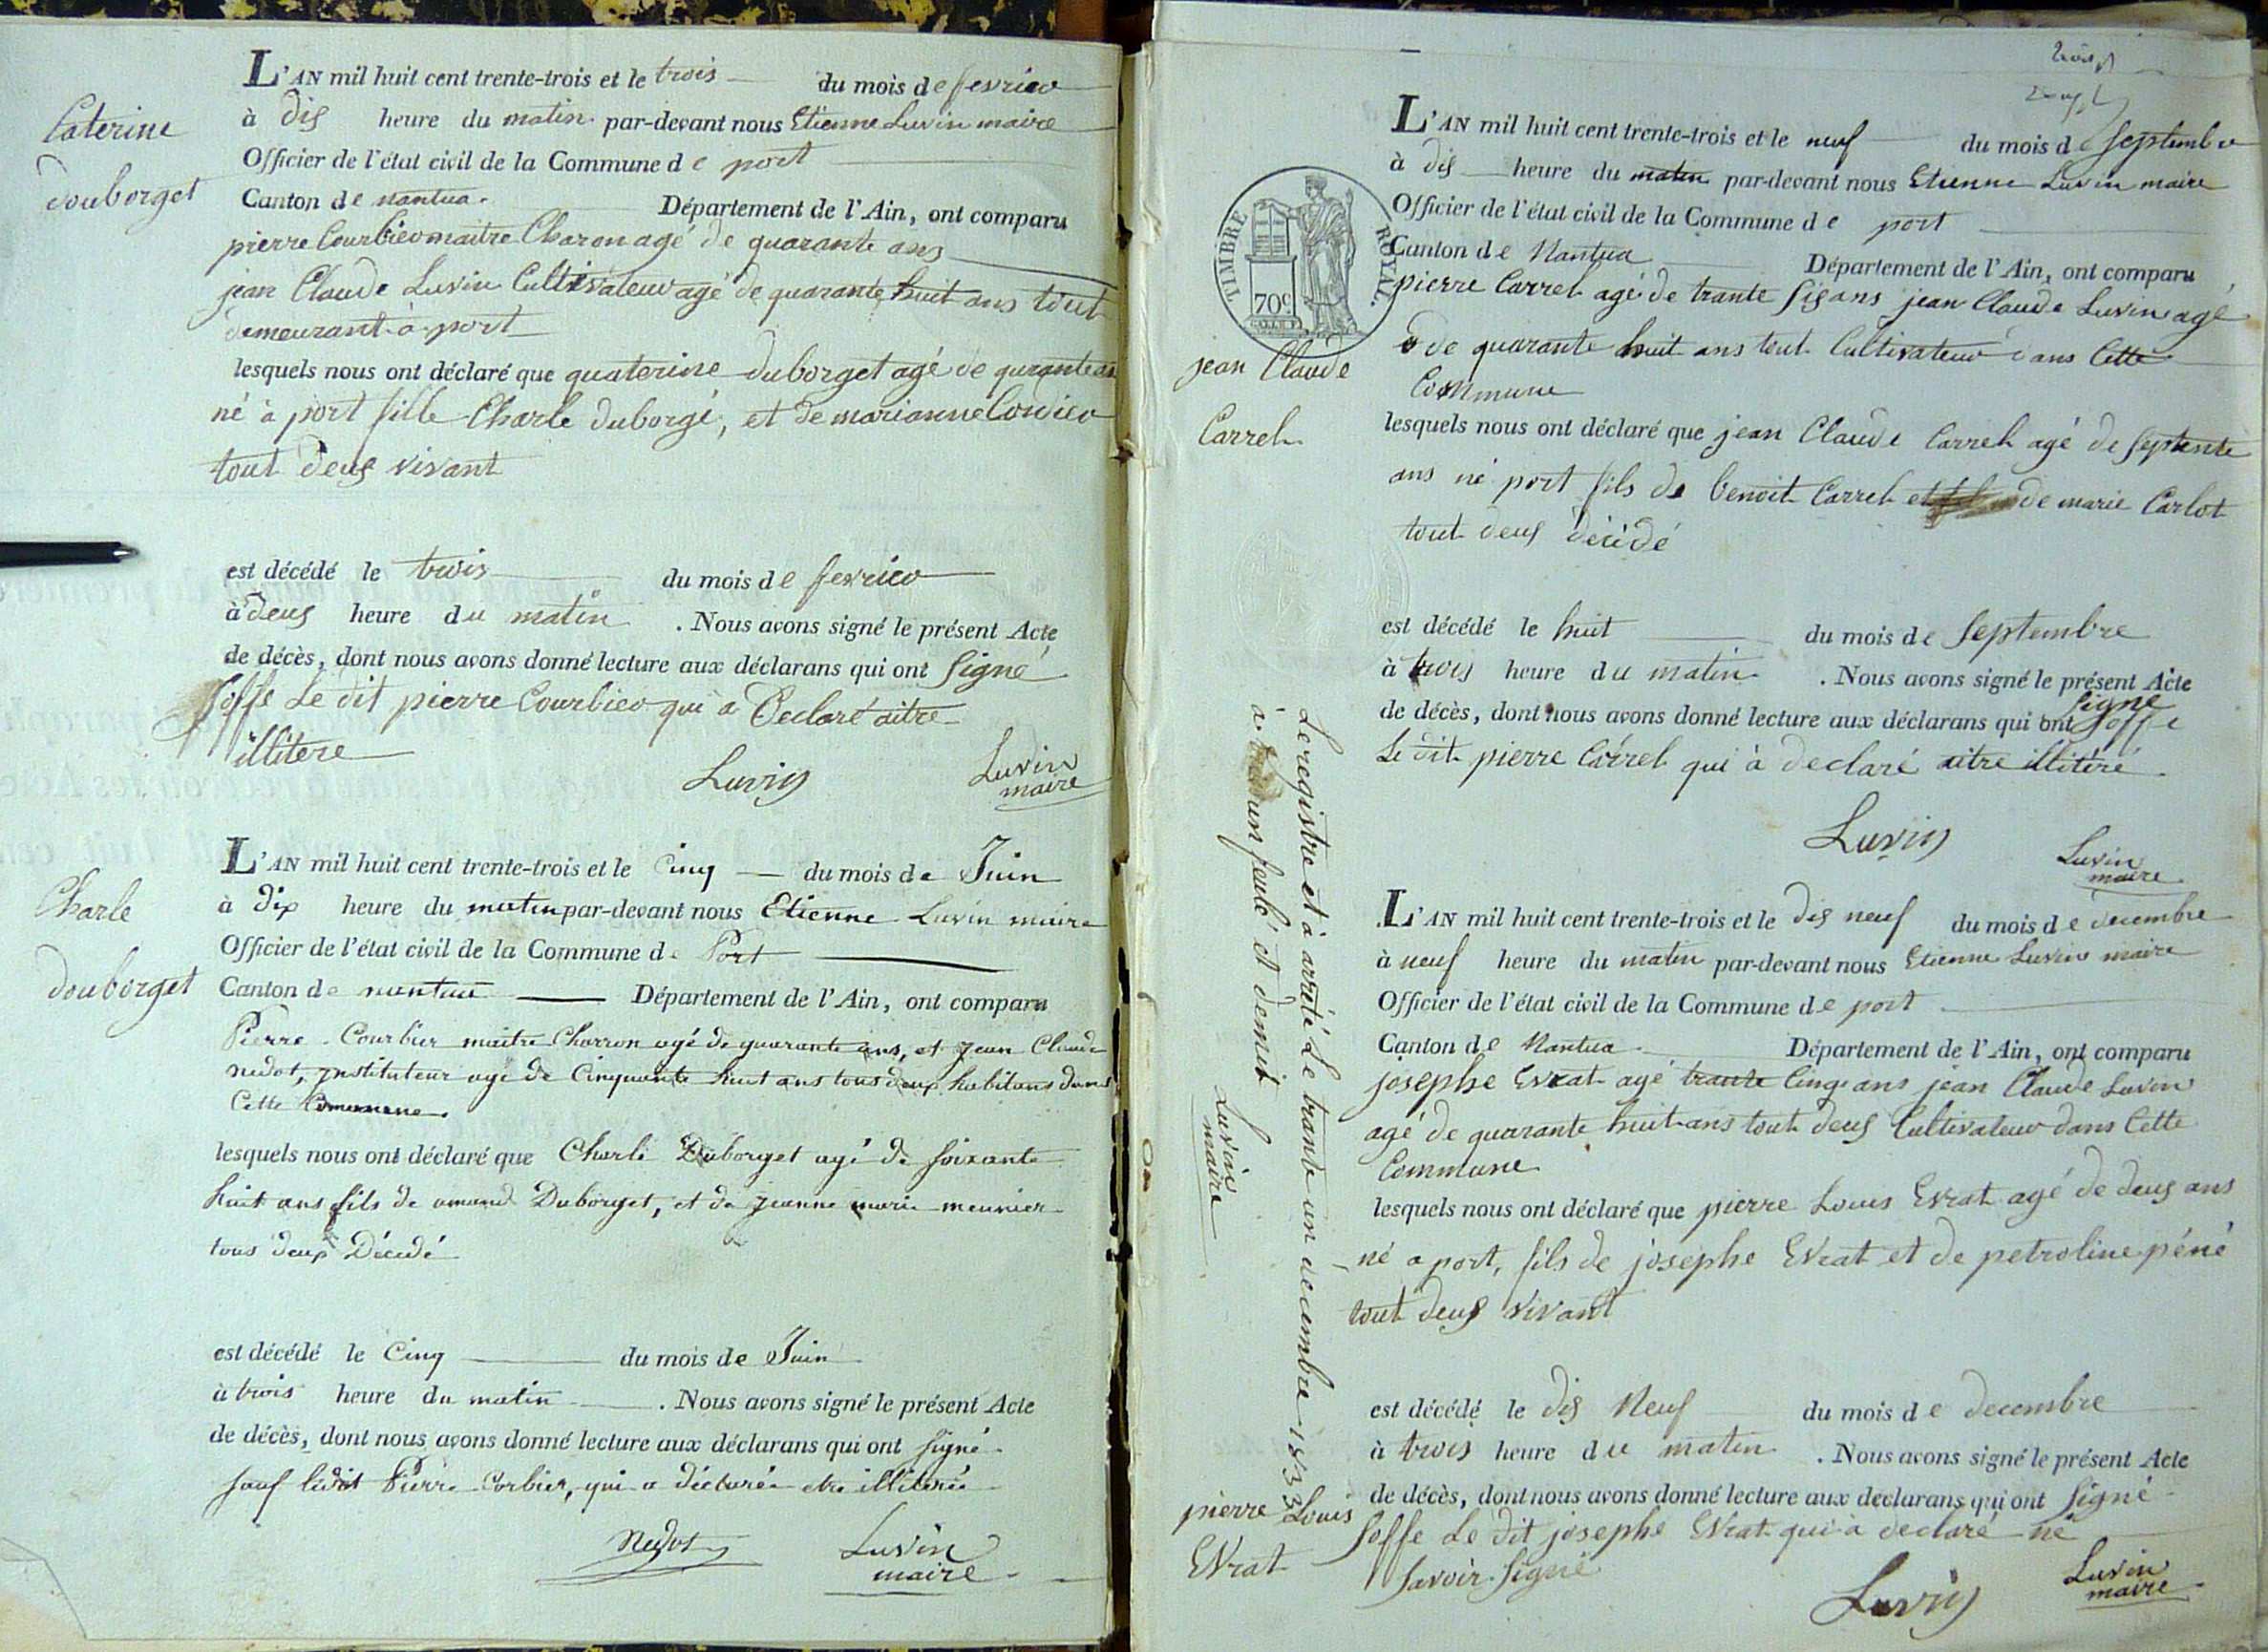 Caterine
douborget
L'AN mil huit cent trente-trois et le trois du mois de fevrieo
à dis heure du matin par-devant nous Etienne Luvin maire
Officier de l'état civil de la Commune de port
Canton de nantua. Département de l'Ain, ont comparu
pierre Courbieo maitre Charon agé de quarante ans
jean Claude Luvin Cultivateuo agé de quarante huit ans tout
demeurant à port
lesquels nous ont déclaré que quaterine duborget agé de qurante an
né à port fille Charle duborgé, et de marianne
tout deus vivant
est décédé le trois du mois de fevrieo
à deus heure du matin . Nous avons signé le présent Acte
de décès, dont nous avons donné lecture aux déclarans qui ont signé
soffe Le dit pierre Courbieo qui à Declaré aitre
illitere
Luvin Luvin
maire
Charle
douborget
L'AN mil huit cent trente-trois et le Cinq du mois de Juin
à dix heure du matin par-devant nous Etienne Luvin maire
Officier de l'état civil de la Commune de Port
Canton de nantua Département de l'Ain, ont comparu
Pierre Courbier maitre Charron agé de quarante ans, et Jean Claude
nedot, instituteur agé de Cinquante huit ans tous deux habitans dans
Cette Commune.
lesquels nous ont déclaré que Charle Duborget agé de soixante
huit ans fils de amand Duborget, et de Jeanne marie meunier
tous deux Décedé
est décédé le Cinq du mois de Juin
à trois heure du matin . Nous avons signé le présent Acte
de décès, dont nous avons donné lecture aux déclarans qui ont signé
sauf ledit Pierre Corbier, qui a déclarée etre illiterée
Nedot Luvin
maire
TIMBRE ROYAL.
70c
jean Claude
Carrel
L'AN mil huit cent trente-trois et le neuf du mois de septembre
à dis heure du matin par-devant nous Etienne Luvin maire
Officier de l'état civil de la Commune de port
Canton de Nantua Département de l'Ain, ont comparu
pierre Carrel agé de trante sis ans jean Claude Luvin agé
de quarante huit ans tout Cultivateuo dans Cette
Commune
lesquels nous ont déclaré que jean Claude Carrel agé de septente
ans né port fils de benoit Carrel et de marie Carlot
tout deus décidé
est décédé le huit du mois de septembre
à trois heure du matin . Nous avons signé le présent Acte
signé
de décès, dont nous avons donné lecture aux déclarans qui ont soffe
Le dit pierre Carrel qui à declaré aitre illitéré
Luvin Luvin
maire
Le registre et à arrété Le trante un decembre 1833
à un seule et demit
Luvin
maire
L'AN mil huit cent trente-trois et le dis neuf du mois de decembre
à neuf heure du matin par-devant nous Etienne Luvin maire
Officier de l'état civil de la Commune de port
Canton de Nantua Département de l'Ain, ont comparu
josephe Evrat agé trante Cinq ans jean Claude Luvin
agé de quarante huit ans tout deus Cultivateuo dans Cette
Commune
lesquels nous ont déclaré que pierre Louis Evrat agé de deus ans
né a port, fils de josephe Evrat et de petroline péné
tout deus vivant
est décédé le dis Neuf du mois de decembre
à trois heure du matin . Nous avons signé le présent Acte
de décès, dont nous avons donné lecture aux declarans qui ont signé
soffe Le dit josephe Evrat qui à declaré né
savoir signé
pierre Louis
Evrat
Luvin Luvin
maire